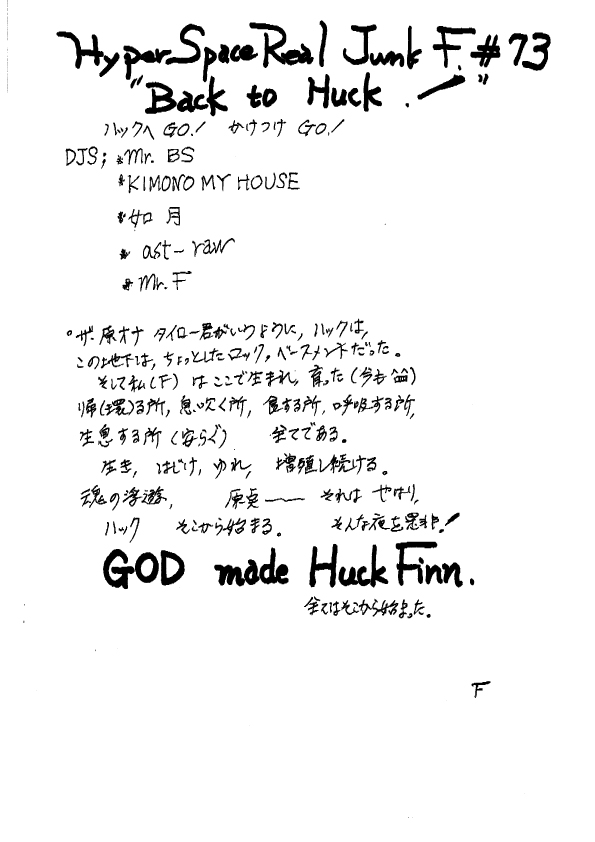 Hyper Space Real Junk F. #73
"Back to Huck !"
ハックへ GO! かけつけ GO!
DJS; *Mr. BS
*KIMONO MY HOUSE
*如月
* ast-raw
*Mr. F
°ザ・原オナ タイロー君がいうように, ハックは,
この地下は, ちょっとしたロック, ベースメントだった。
そして私(F) はここで生まれ, 育った (今も
帰(環)る所, 息吹く所, 食する所, 呼吸する所,
生息する所 (安らぐ) 全てである。
生き, はじけ, ゆれ, 増殖し続ける。
魂の浮遊, 原点—— それは やはり,
ハック そこから始まる。 そんな夜を是非!
GOD made Huck Finn.
全てはそこから始まった。
F